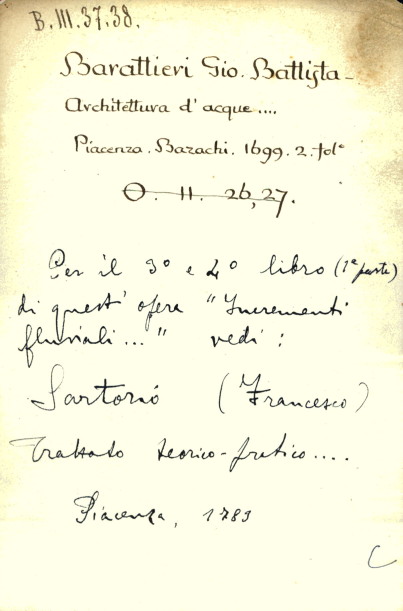 B. III. 37. 38.
Barattieri Gio. Battista -
Architettura d'acque ....
Piacenza. Bazachi. 1699. 2. fol°
O. II. 26, 27.
Per il 3° e 4° libro (1ª parte)
di quest' opera "Incrementi
fluviali..." vedi:
Sartorio (Francesco)
Trattato teorico-pratico ....
Piacenza, 1789
C